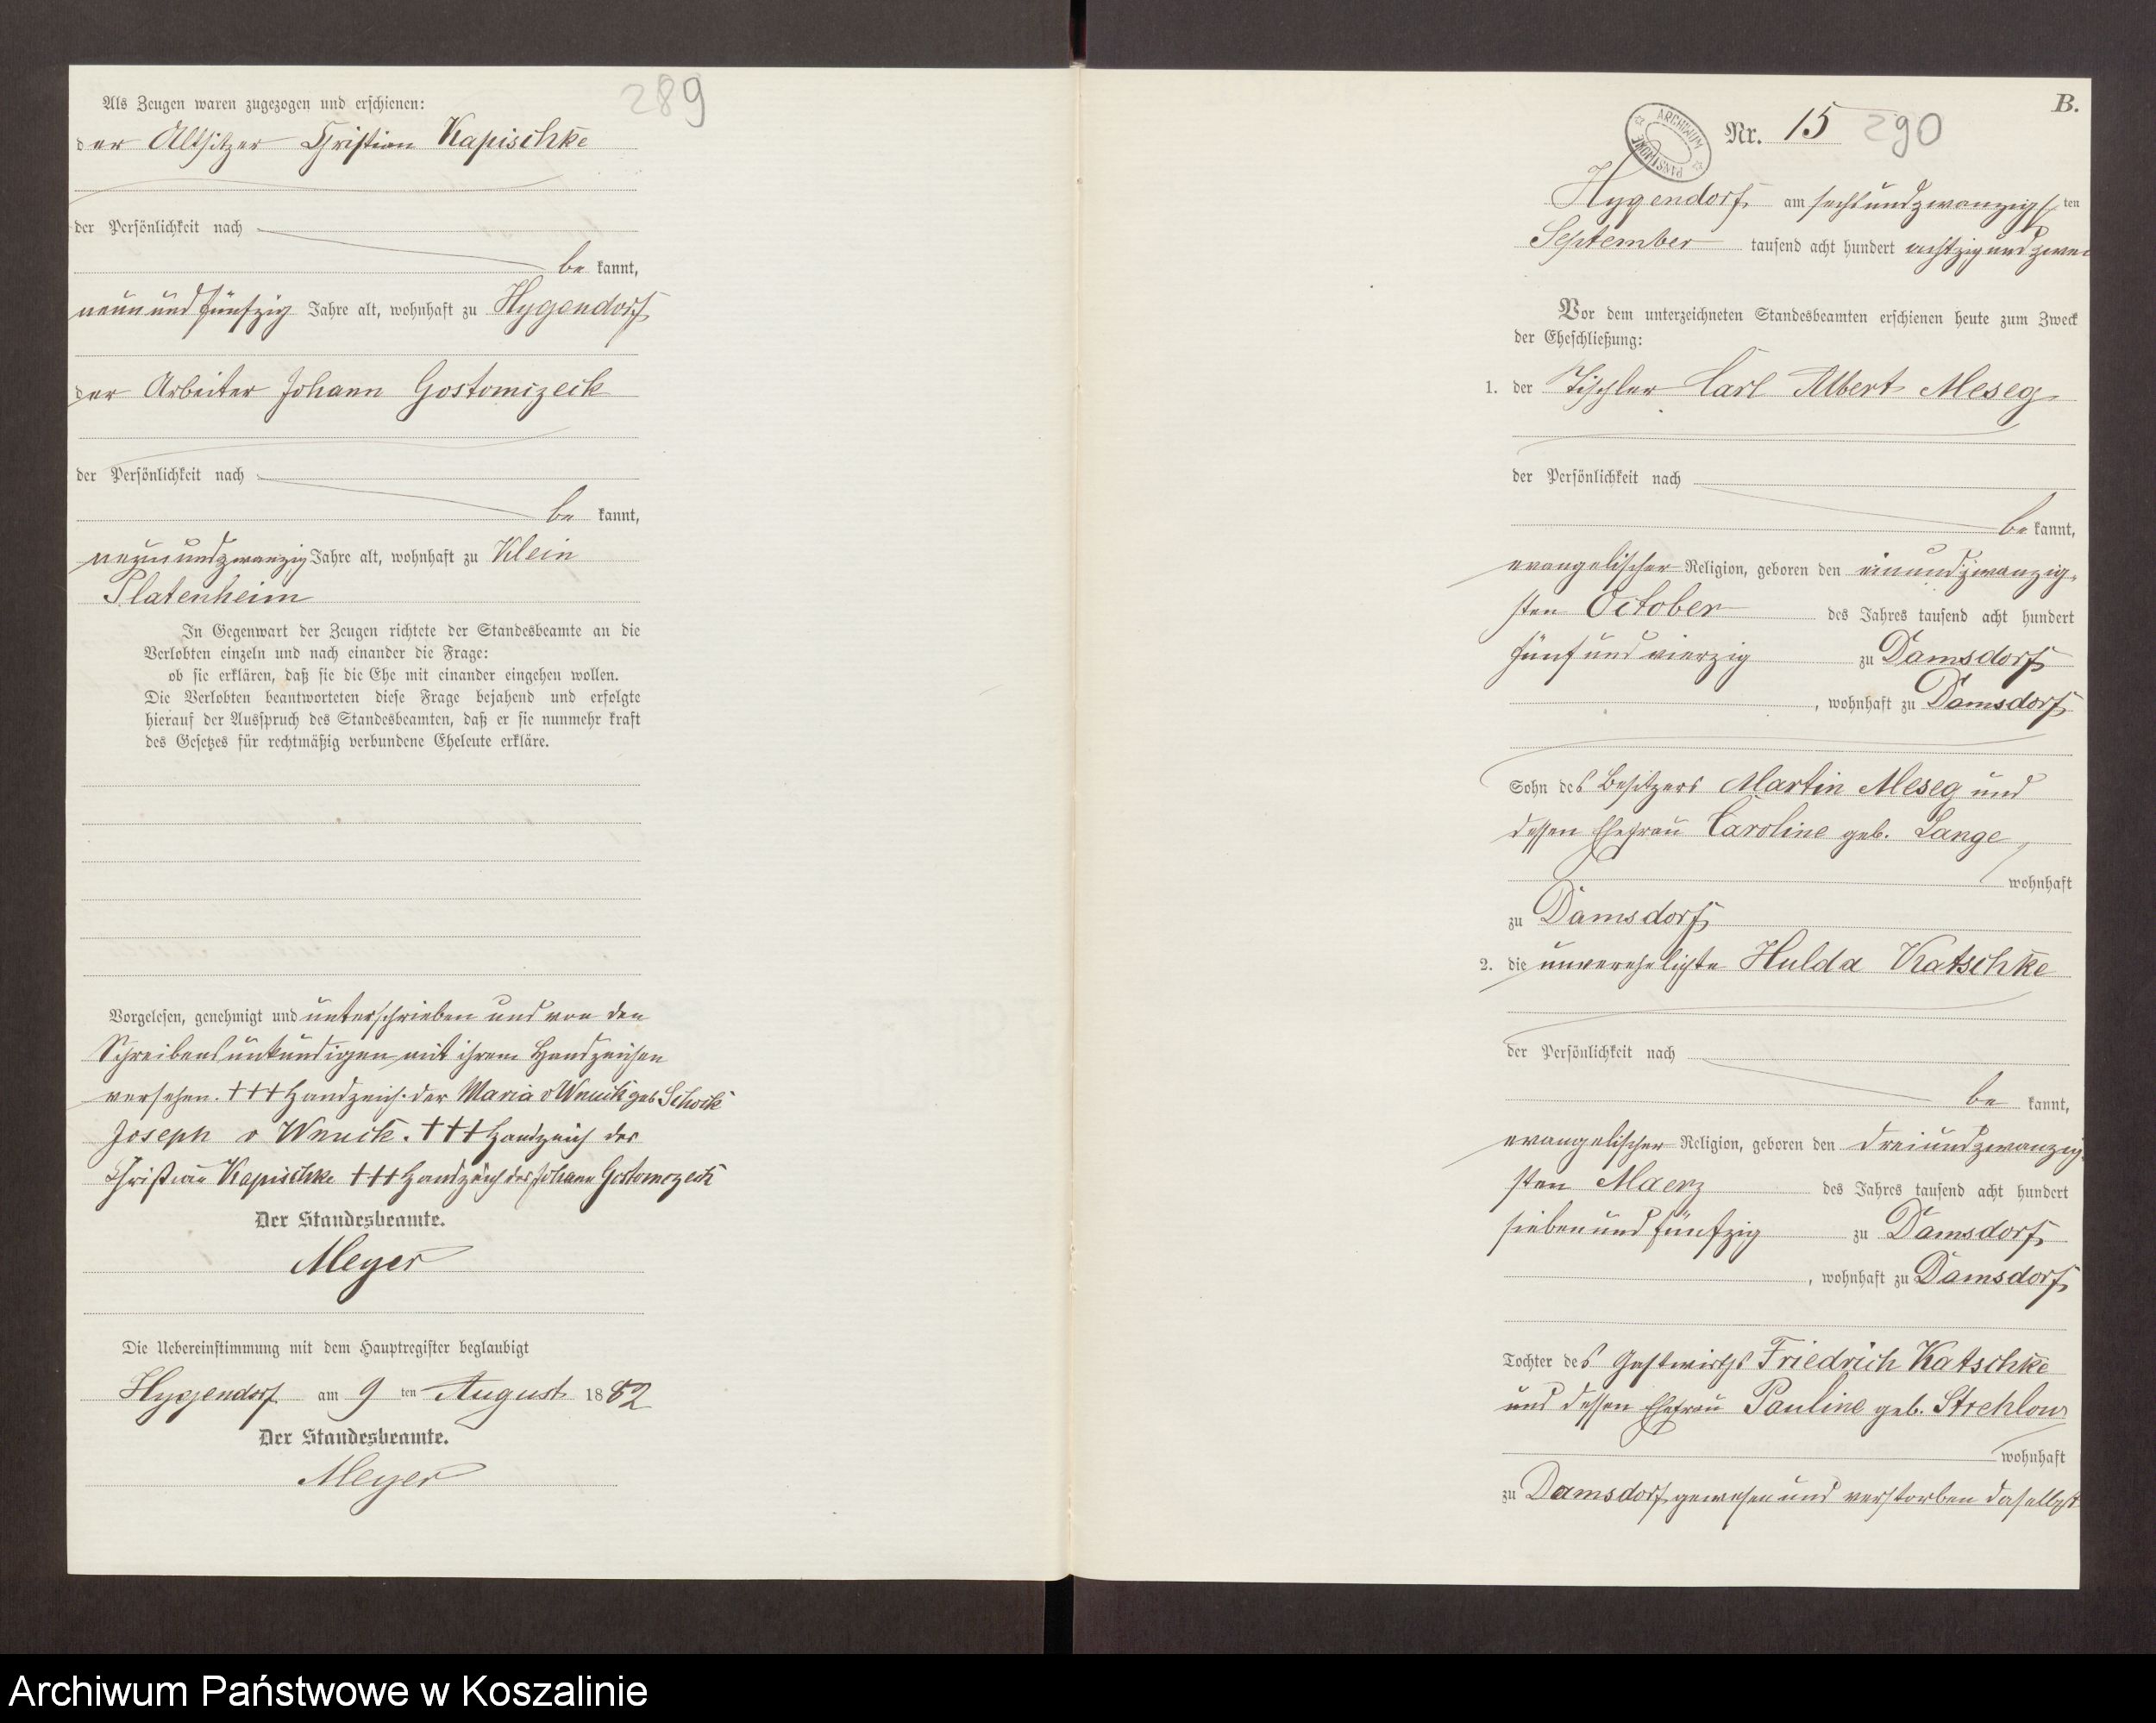 289
Als Zeugen waren zugezogen und erschienen:
der Altsitzer Christian Kapischke
der Persönlichkeit nach
be kannt,
neun und fünfzig Jahre alt, wohnhaft zu Hygendorf
der Arbeiter Johann Gostomczeck
der Persönlichkeit nach
be kannt,
neunundzwanzig Jahre alt, wohnhaft zu Klein
Platenheim
In Gegenwart der Zeugen richtete der Standesbeamte an die
Verlobten einzeln und nach einander die Frage:
ob sie erklären, daß sie die Ehe mit einander eingehen wollen.
Die Verlobten beantworteten diese Frage bejahend und erfolgte
hierauf der Ausspruch des Standesbeamten, daß er sie nunmehr kraft
des Gesetzes für rechtmäßig verbundene Eheleute erkläre.
Vorgelesen, genehmigt und unterschrieben und von den
Schreibensunkundigen mit ihrem Handzeichen
versehen. +++ Handzeich. der Maria v Wnuck geb Schock
Joseph v Wnuck. +++ Handzeich des
Christian Kapischke +++ Handzeich des Johann Gostomczeck
Der Standesbeamte.
Meyer
Die Uebereinstimmung mit dem Hauptregister beglaubigt
Hygendorf am 9 ten August 1882
Der Standesbeamte.
Meyer
B.
ARCHIWUM PAŃSTWOWE
Nr. 15 290
Hygendorf am sechsundzwanzigsten
September tausend acht hundert achtzig und zwei
Vor dem unterzeichneten Standesbeamten erschienen heute zum Zweck
der Eheschließung:
1. der Tischler Carl Albert Meseg
der Persönlichkeit nach
be kannt,
evangelischer Religion, geboren den einundzwanzig-
sten October des Jahres tausend acht hundert
fünf und vierzig zu Damsdorf
, wohnhaft zu Damsdorf
Sohn des Besitzers Martin Meseg und
dessen Ehefrau Caroline geb. Lange
wohnhaft
zu Damsdorf
2. die unverehelichte Hulda Katschke
der Persönlichkeit nach
be kannt,
evangelischer Religion, geboren den dreiundzwanzig-
sten Maerz des Jahres tausend acht hundert
sieben und fünfzig zu Damsdorf
, wohnhaft zu Damsdorf
Tochter des Gastwirths Friedrich Katschke
und dessen Ehefrau Pauline geb. Strehlow
wohnhaft
zu Damsdorf gewesen und verstorben daselbst
Archiwum Państwowe w Koszalinie